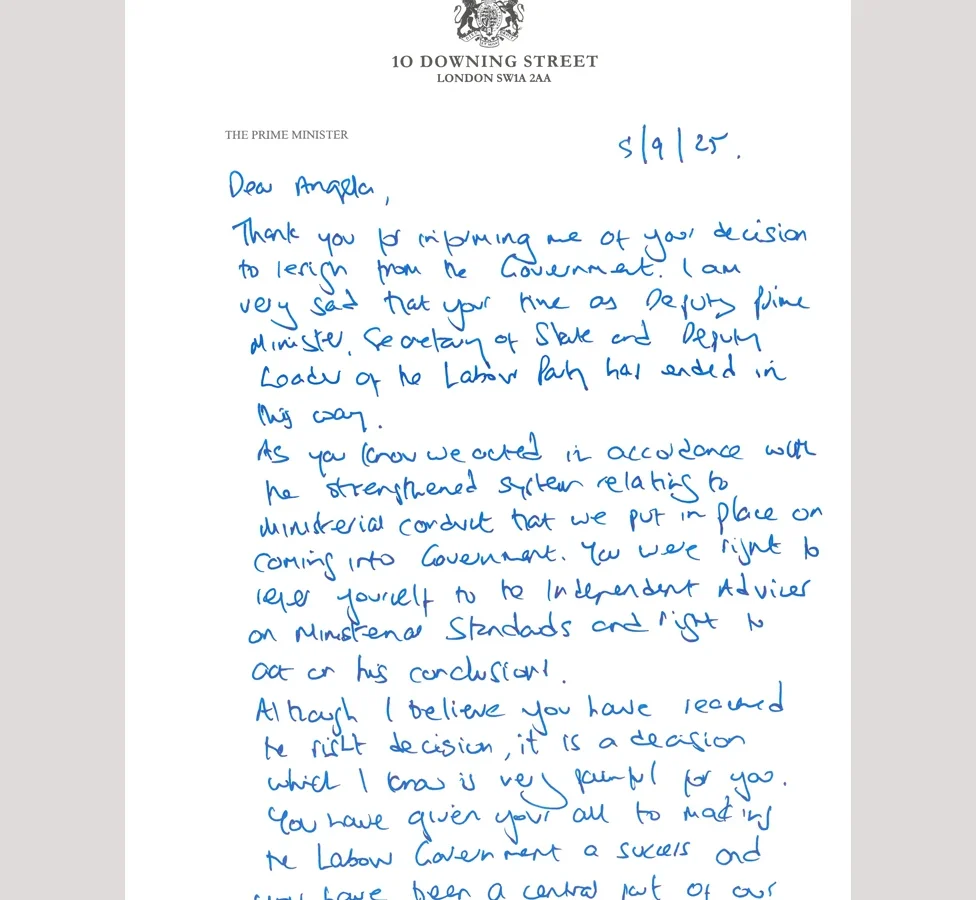 10 DOWNING STREET
LONDON SW1A 2AA
THE PRIME MINISTER
5/9/25.
Dear Angela,
Thank you for informing me of your decision
to resign from the Government. I am
very sad that your time as Deputy Prime
Minister, Secretary of State and Deputy
Leader of the Labour Party has ended in
this way.
As you know we acted in accordance with
the strengthened system relating to
ministerial conduct that we put in place on
coming into Government. You were right to
refer yourself to the Independent Adviser
on Ministerial Standards and right to
act on his conclusions.
Although I believe you have reached
the right decision, it is a decision
which I know is very painful for you.
You have given your all to making
the Labour Government a success and
you have been a central part of our